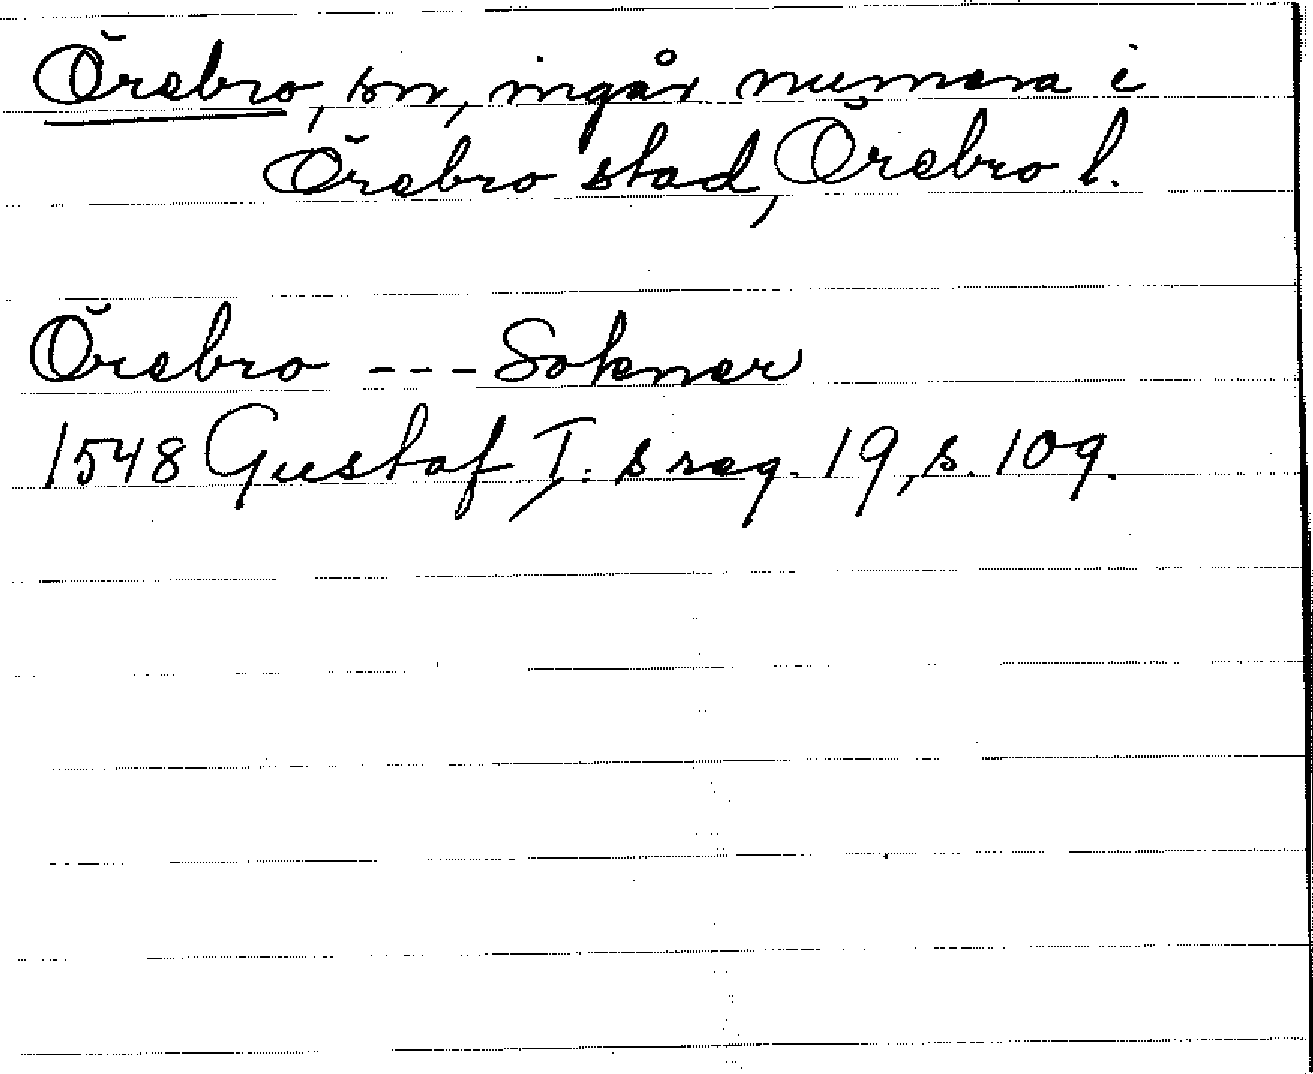 Örebro, sn, ingår numera i
Örebro stad, Örebro l.
Örebro --- Sokner
1548 Gustaf I: s reg. 19, s. 109.